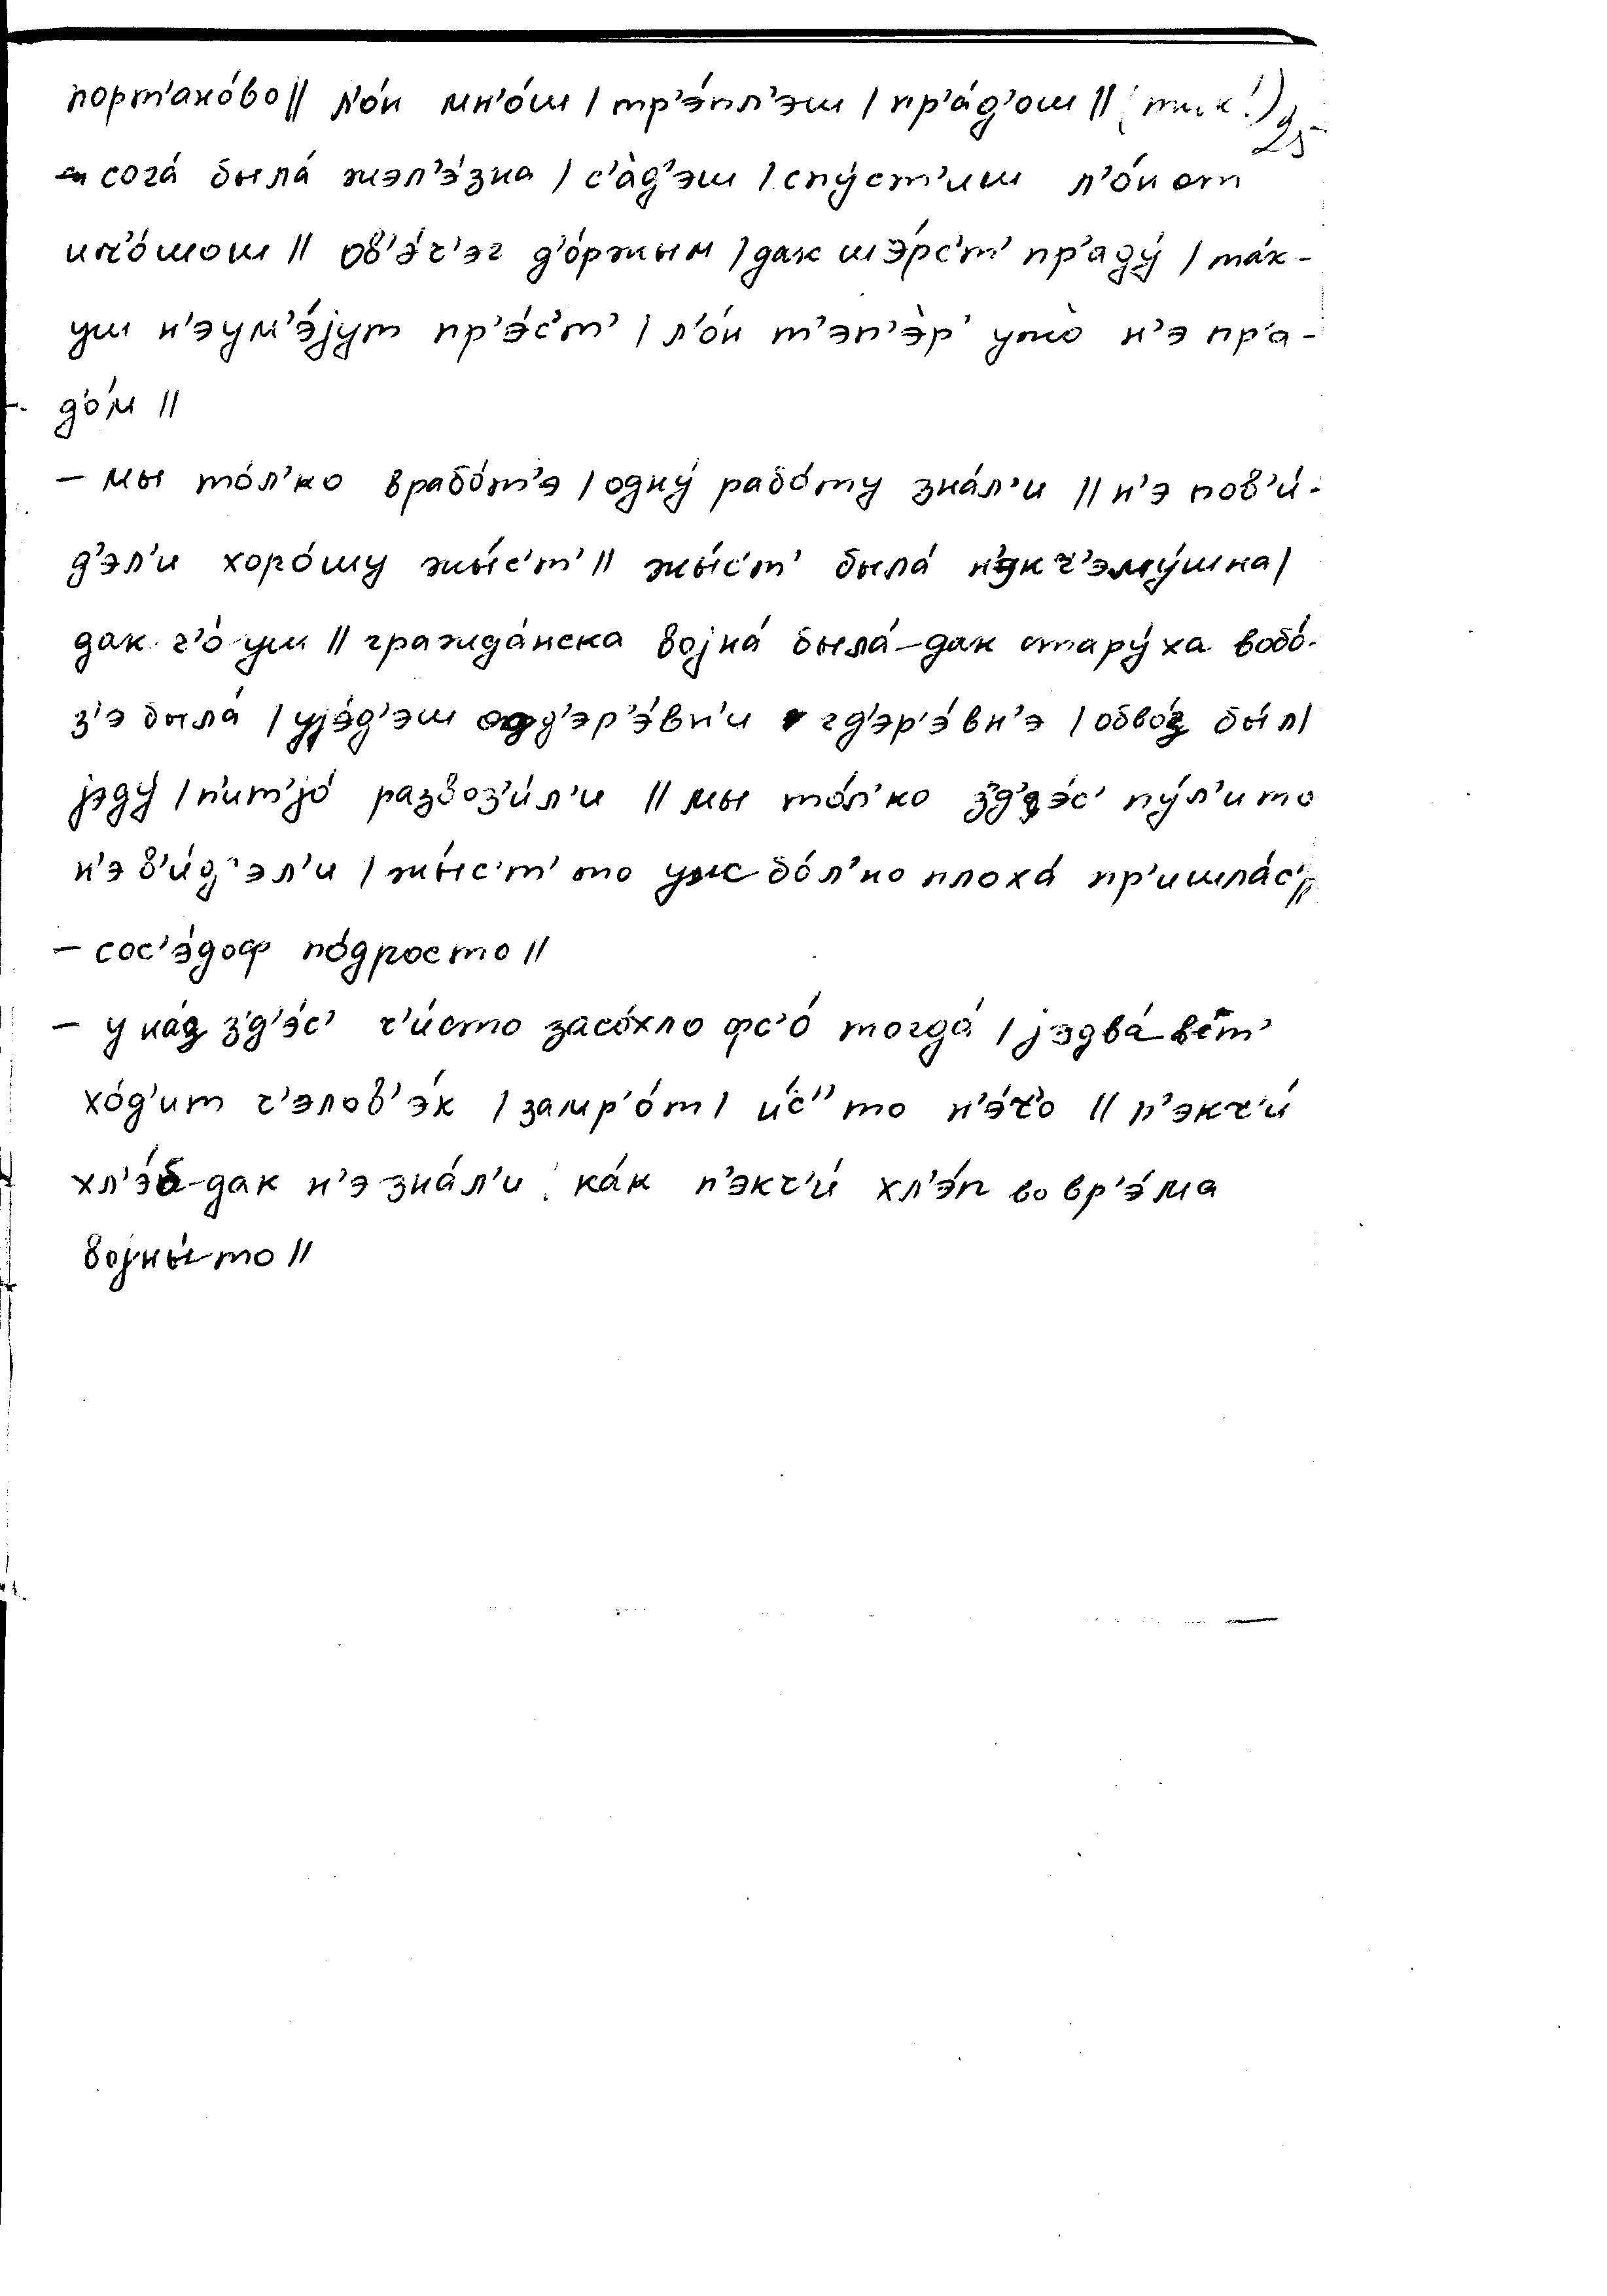 порт'ано́во || л'о́н мн'о́ш / тр'э́пл'эш / пр'а́д'ош || (так!) 25
сога́ была́ жэл'э́зна / с'а̀д'эш / спу́ст'иш л'о́н от
ич'о́шош || ов'э́ч'эг д'о́ржым / дак шэ́рс'т' пр'аду́ / та́к-
уш н'эум'э́јут пр'э́с'т' / л'о́н т'эп'э̀р' ужо̀ н'э пр'а-
д'о́м ||
– мы то́л'ко врабо́т'э / одну́ рабо́ту зна́л'и || н'э пов'и́-
д'эл'и хоро́шу жы́с'т' || жы́с'т' была́ н'экч'эму́шна /
дак ч'о́ уш || гражда́нска војна́ была́-дак стару́ха вобо́-
з'э была́ / ујэ́д'эш одд'эр'э́вн'и гд'эр'э́вн'э / обво́з бы́л /
јэду́ / п'ит'јо́ развоз'и́л'и || мы то́л'ко з'д'э́с' пу́л'ито
н'э в'и́д'эл'и / жы́с'т' то уж бо́л'но плоха́ пр'ишла́с' ||
– сос'э́доф по́дросто ||
– у на́з з'д'э́с' ч'и́сто засо́хло фс'о́ тогда́ / јэдва́ вет'
хо́д'ит ч'элов'э́к / замр'о́т / и́с'' то н'э́ч'о || п'экч'и́
хл'э́б-дак н'э зна́л'и ка́к п'экч'и́ хл'э́п во вр'э́ма
војны́-то ||